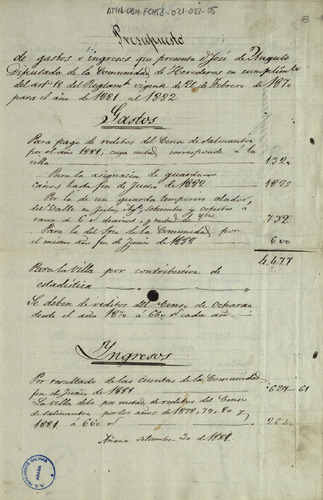 ATHA-DAH-FCHCS-021-022-05
8
Presupuesto
de gastos é ingresos que presenta D José de Angulo
Diputado de la Comunidad de Herederos en cumplimiento
del artº 18 del Reglamtº vigente de 21 de Febrero de 1870
para el año de 1881 al 1882
Gastos
Para pago de reditos del Censo de Salmantón
por el año de 1881, cuya mitad corresponde á la
villa 1320
Para la asignacion de guardas
caños hasta fin de Junio de 1882 1825
Por la de un guarda temporero
del Valle en Julio, Agtº, Setiembre y octubre á
razon de 6 rs diarios, y mitad 732
Para la del Srio de la Comunidad, por
el mismo año fin de junio de 1882 600
4.477
Para la Villa por contribucion de
estadística "
Se deben de reditos del Censo de Ocharan
desde el año 1870 á 660 rs cada año
Ingresos
Por resultado de las cuentas de la Comunidad
fin de Junio de 1881 61
La Villa debe por mitad de reditos del Censo
de Salmantón por los años de 1878, 79, 80 y
1881 á 660 rs 2640
Añana Setiembre 20 de 1881